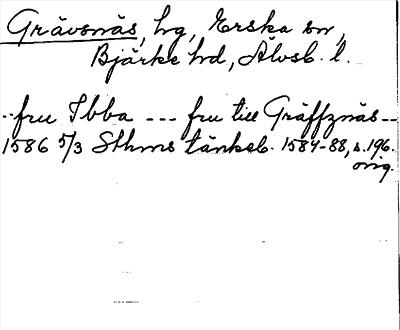 Grävsnäs, hg, Erska sn,
Bjärke hd, Älvsb. l.
--fru Ibba --- fru till Gräffznäs--
1586 5/3 Sthms tänkeb. 1584-88, s. 196.
orig.